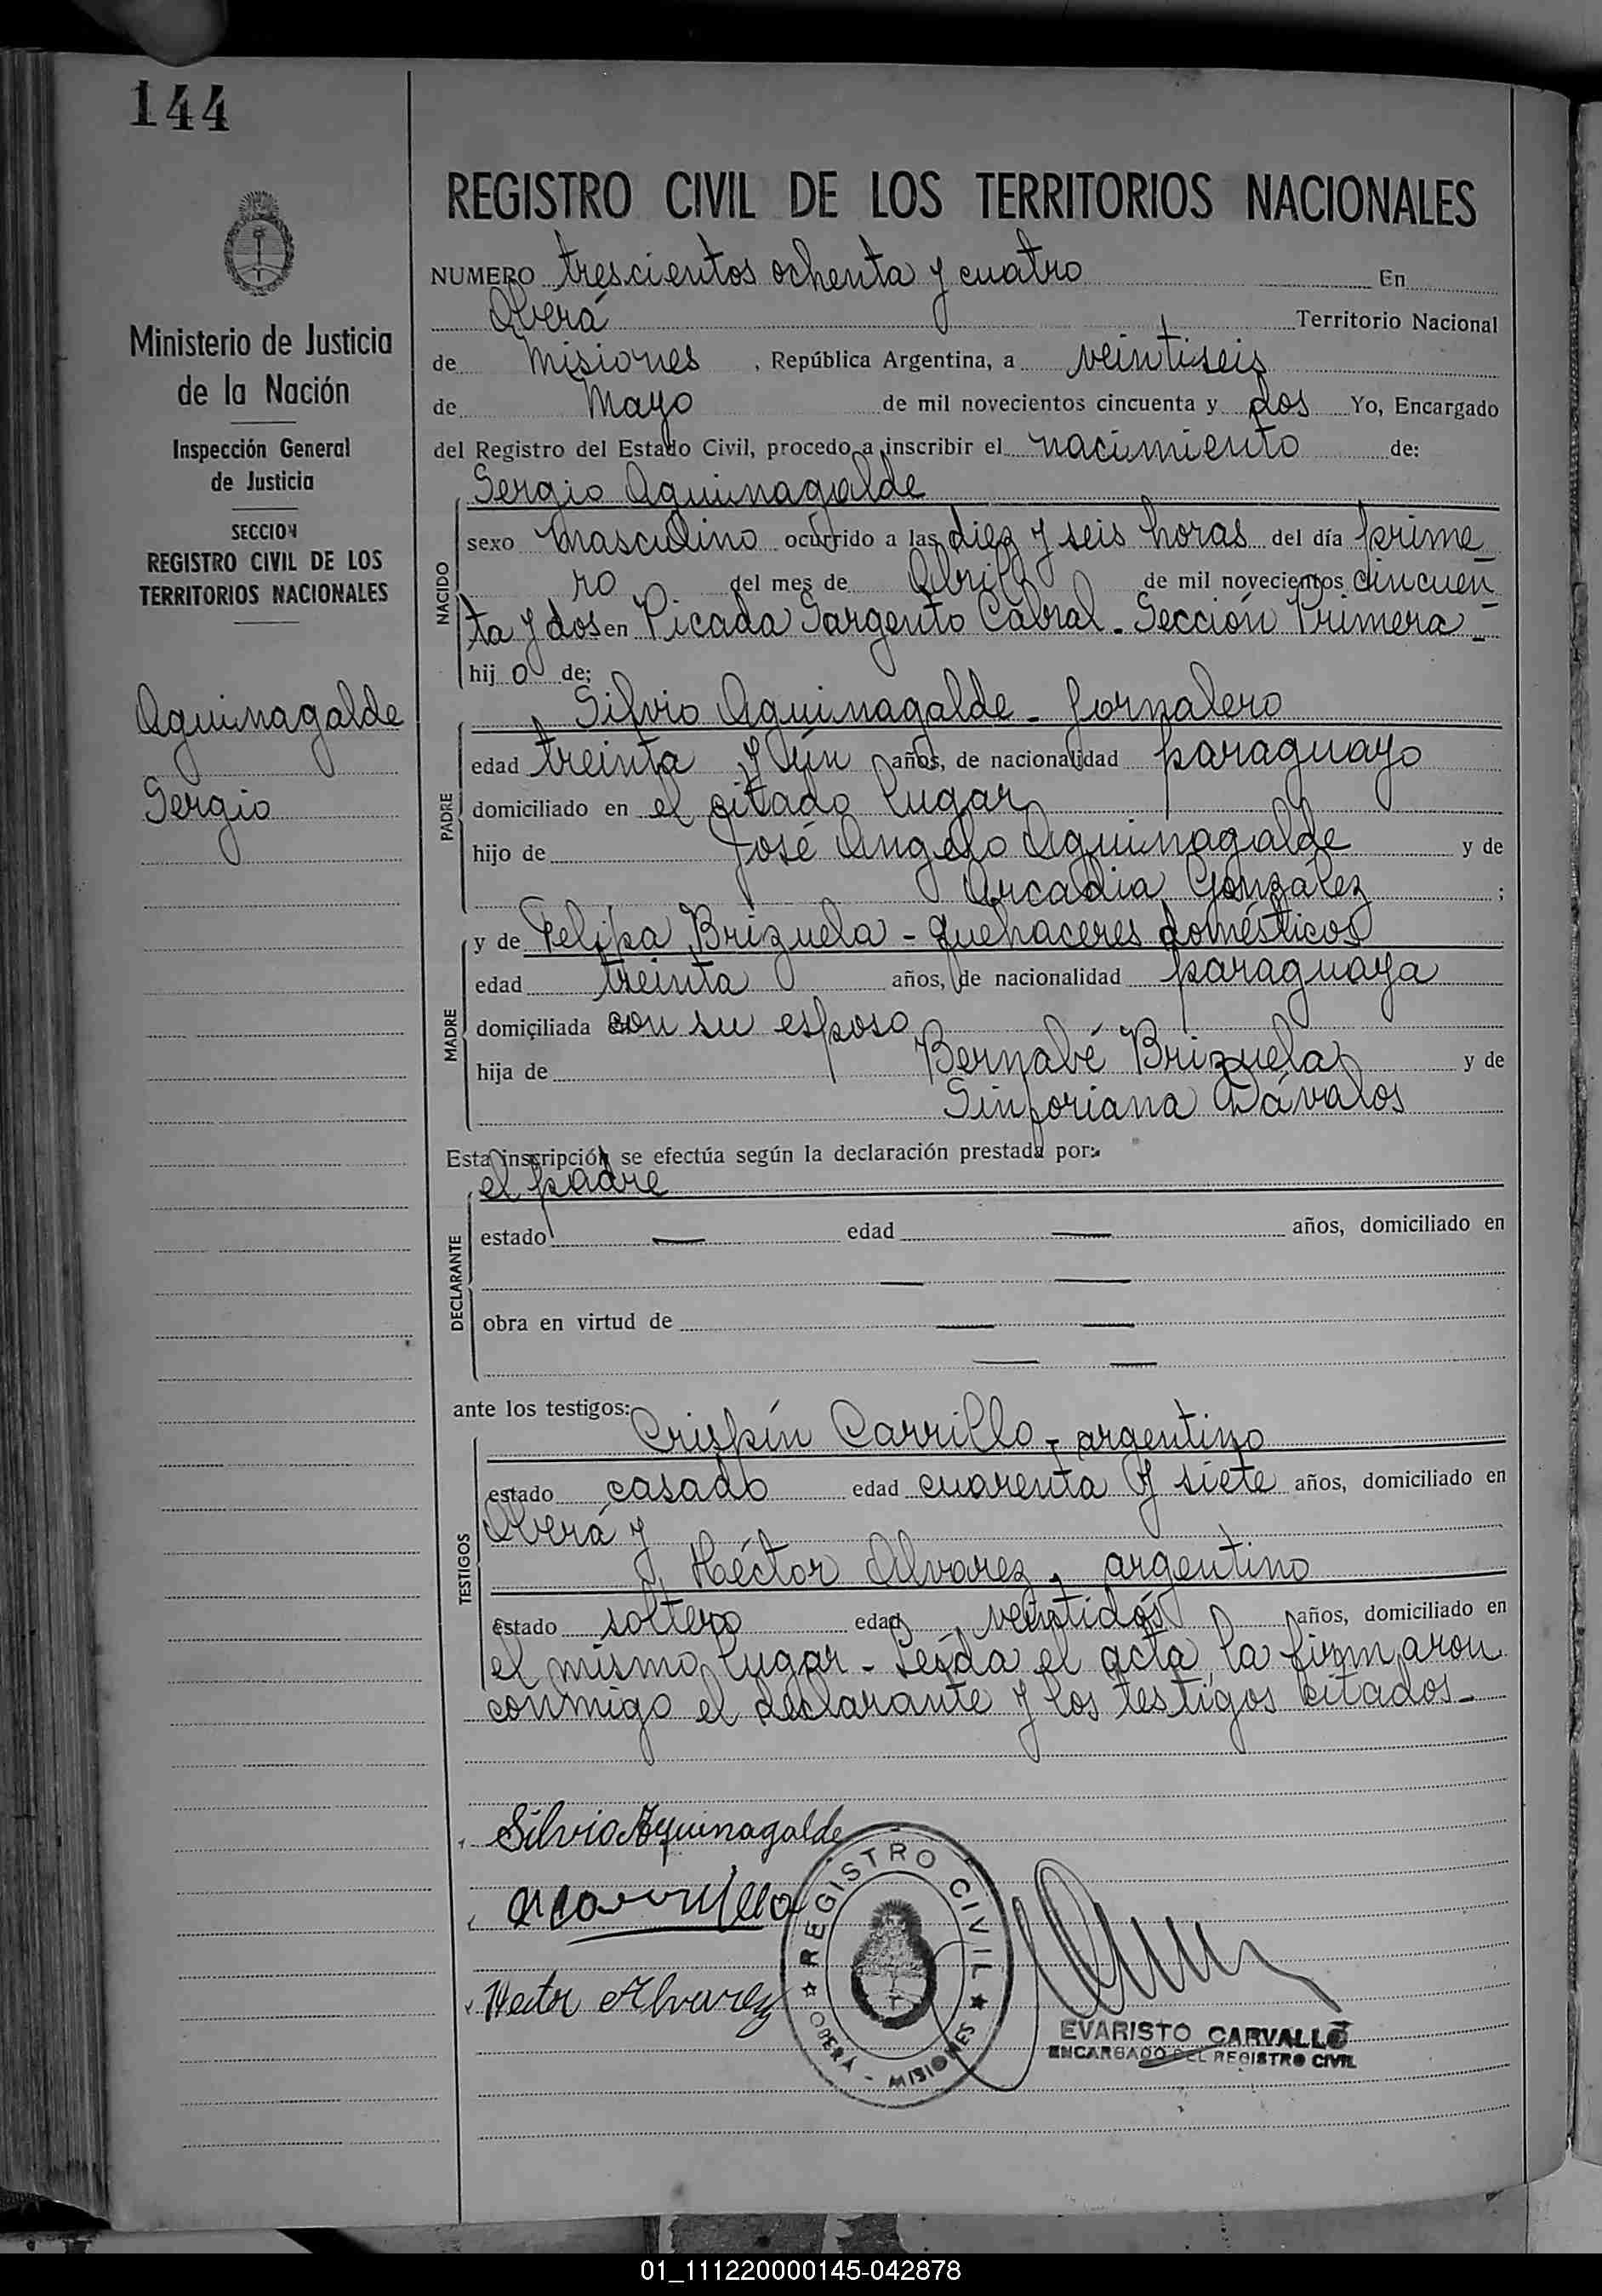 144
Ministerio de Justicia
de la Nación
Inspección General
de Justicia
SECCION
REGISTRO CIVIL DE LOS
TERRITORIOS NACIONALES
Aguinagalde
Sergio
REGISTRO CIVIL DE LOS TERRITORIOS NACIONALES
NUMERO trescientos ochenta y cuatro En
Oberá Territorio Nacional
de Misiones, República Argentina, a veintiseis
de Mayo de mil novecientos cincuenta y dos Yo, Encargado
del Registro del Estado Civil, procedo a inscribir el nacimiento de:
Sergio Aguinagalde
NACIDO
sexo masculino ocurrido a las diez y seis horas del día prime-
ro del mes de Abril de mil novecientos cincuen
ta y dos en Picada Sargento Cabral - Sección Primera -
hijo de:
Silvio Aguinagalde - Jornalero
PADRE
edad treinta y ún años, de nacionalidad paraguayo
domiciliado en el citado lugar
hijo de José Angelo Aguinagalde y de
Arcadia González ;
MADRE
y de Felipa Brizuela - quehaceres domésticos
edad treinta años, de nacionalidad paraguaya
domiciliada con su esposo
hija de Bernabé Brizuela y de
Sinforiana Dávalos
Esta inscripción se efectúa según la declaración prestada por:
el padre
DECLARANTE
estado — edad — años, domiciliado en
— —
obra en virtud de — —
— —
ante los testigos:
Crispín Carrillo - argentino
TESTIGOS
estado casado edad cuarenta y siete años, domiciliado en
Oberá y
Héctor Alvarez, argentino
estado soltero edad veintidós años, domiciliado en
el mismo lugar - Leída el acta la firmaron
conmigo el declarante y los testigos citados -
Silvio Aguinagalde
Hector Alvarez
REGISTRO CIVIL
OBERÁ - MISIONES
EVARISTO CARVALLO
ENCARGADO DEL REGISTRO CIVIL
01_111220000145-042878